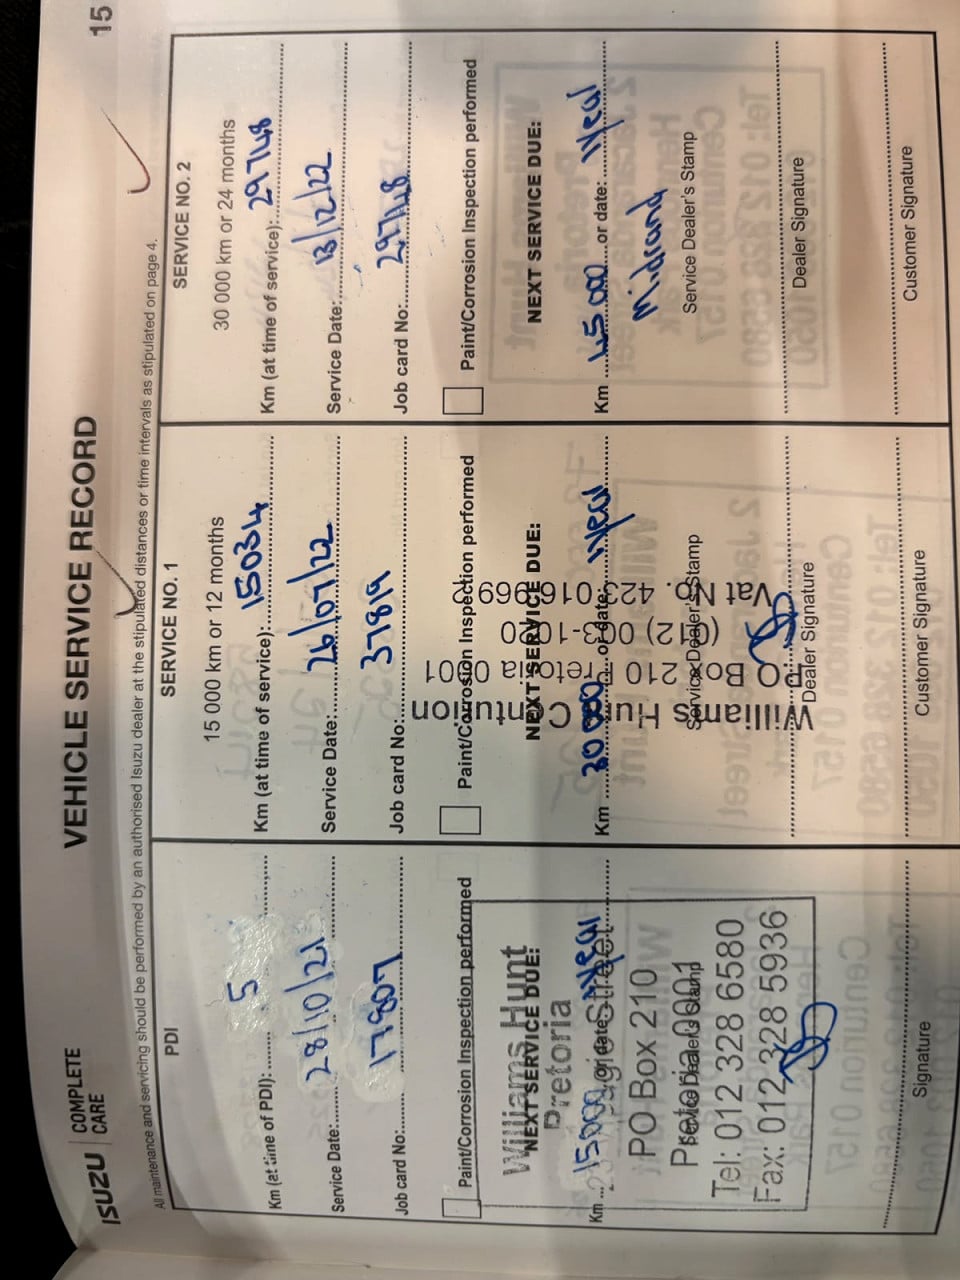 ISUZU COMPLETE CARE
VEHICLE SERVICE RECORD
15
All maintenance and servicing should be performed by an authorised Isuzu dealer at the stipulated distances or time intervals as stipulated on page 4.
PDI
Km (at time of PDI): 5
Service Date: 28/10/21
Job card No: 17807
Paint/Corrosion Inspection performed
Williams Hunt
NEXT SERVICE DUE:
Pretoria
Km 15000 or date: 1year
Street
PO Box 210
Pretoria 0001
Service Dealer's Stamp
Tel: 012 328 6580
Fax: 012 328 5936
Signature
SERVICE NO. 1
15 000 km or 12 months
Km (at time of service): 15034
Service Date: 26/07/22
Job card No: 37819
Paint/Corrosion Inspection performed
NEXT SERVICE DUE:
Km 30 000 or date: 1year
Service Dealer's Stamp
Williams Hunt Centurion
PO Box 210 Pretoria 0001
Vat No. 423 016 969 2
Dealer Signature
Customer Signature
SERVICE NO. 2
30 000 km or 24 months
Km (at time of service): 29748
Service Date: 13/12/22
Job card No: 29748
Paint/Corrosion Inspection performed
NEXT SERVICE DUE:
Km 45 000 or date: 1year
Midrand
Service Dealer's Stamp
Dealer Signature
Customer Signature